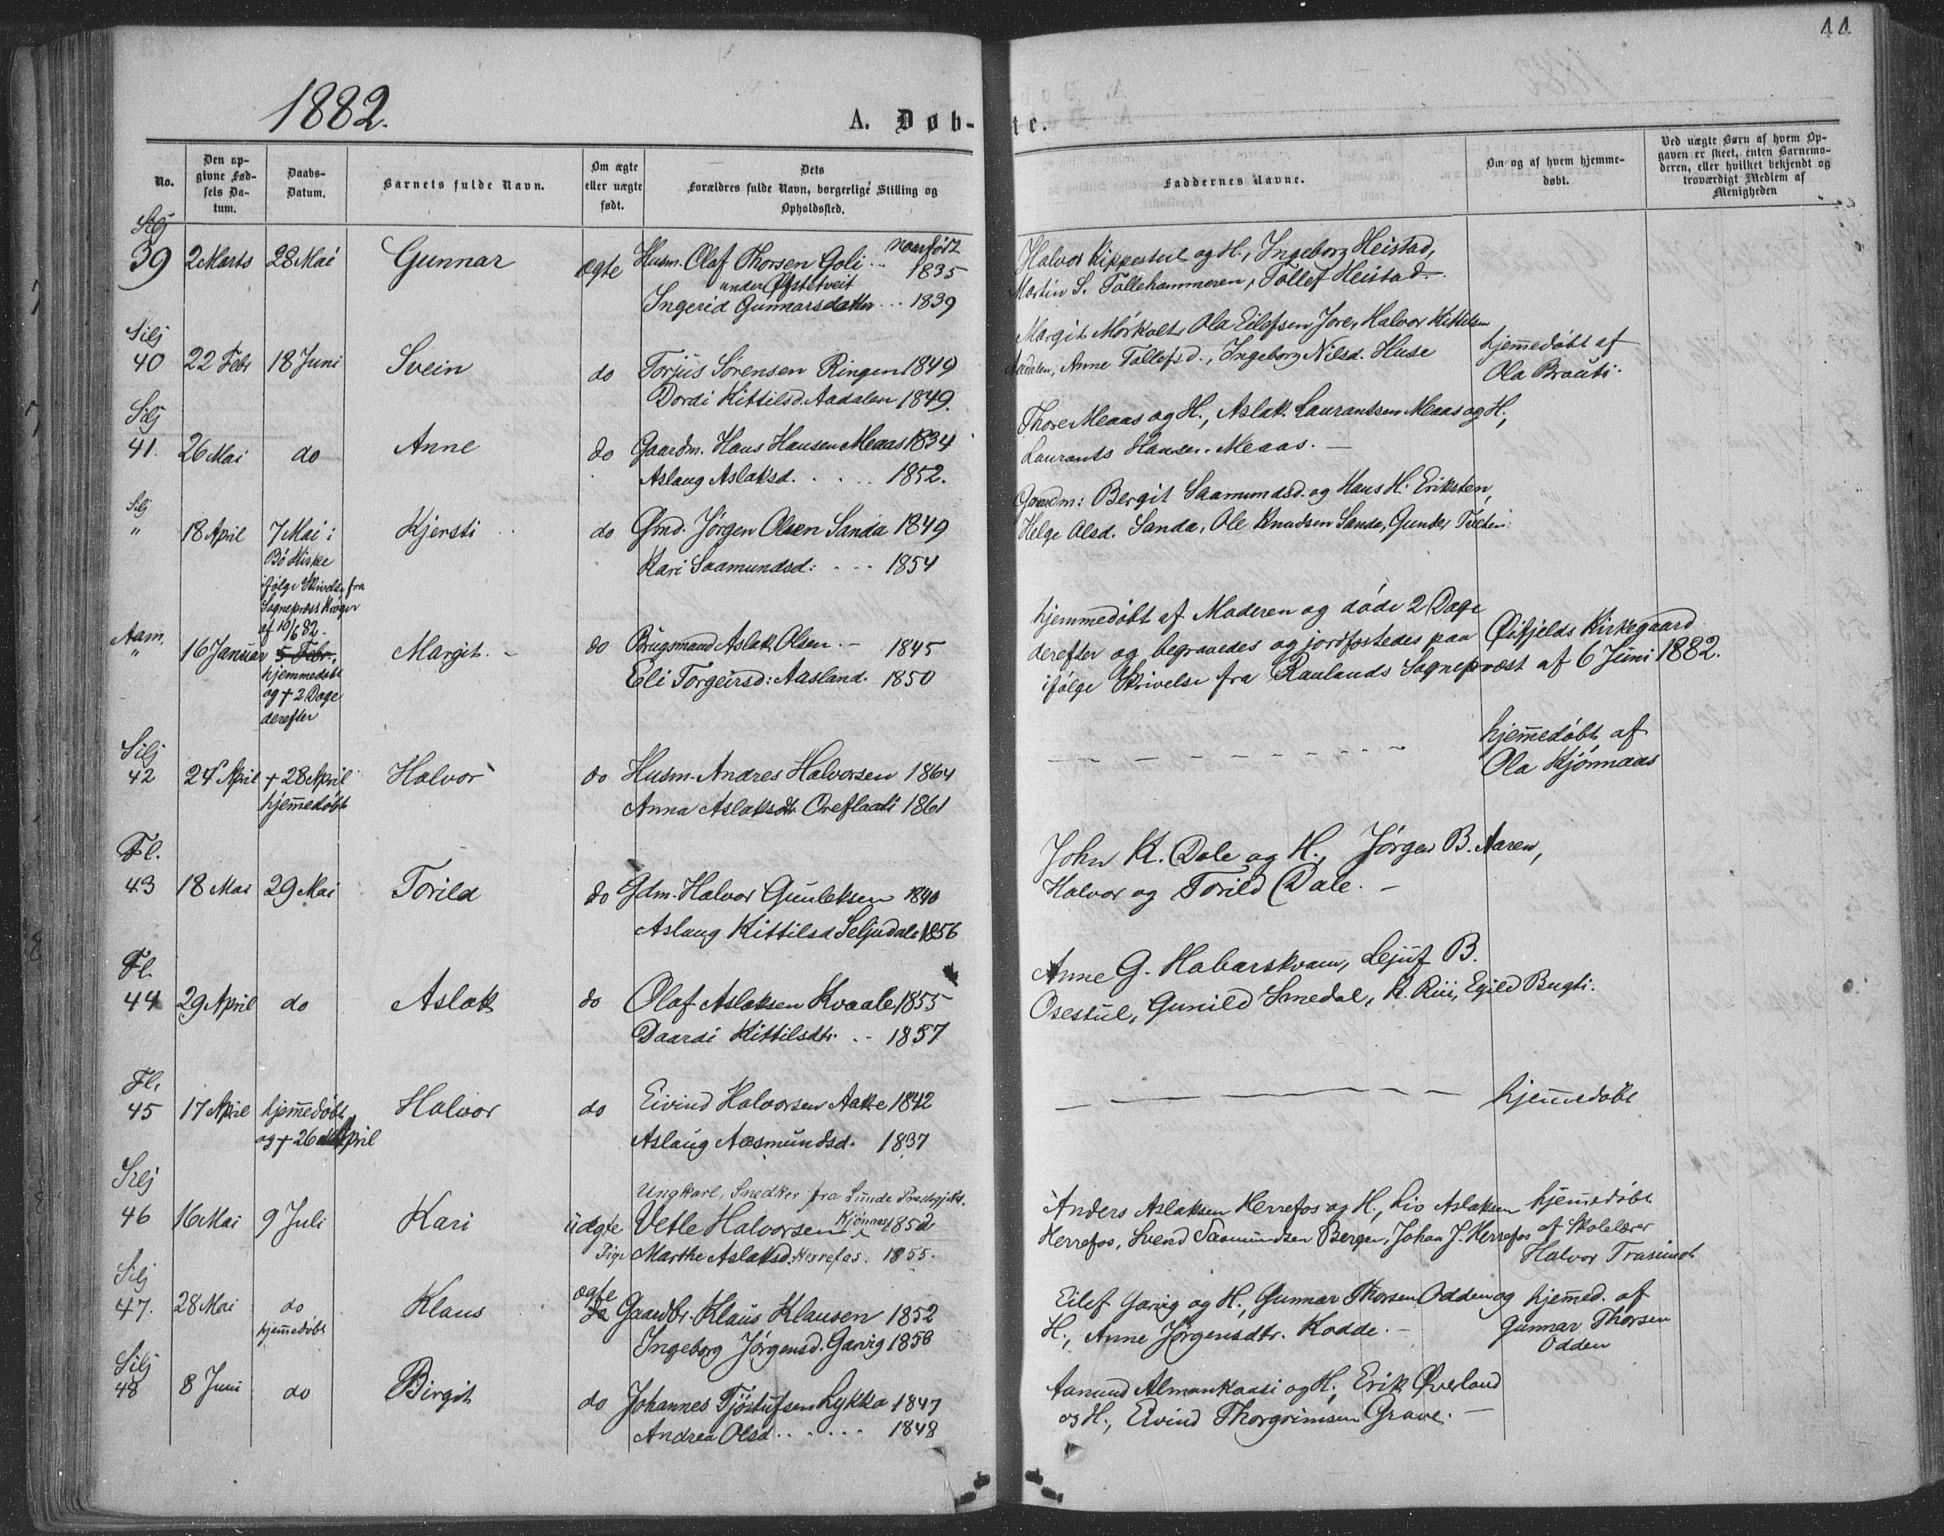 44
1882.
A. Døb-
te.
No.
Den op-
givne Fød-
sels Da-
tum.
Daabs-
Datum.
Barnets fulde Navn.
Om ægte
eller uægte
født.
Dets
Forældres fulde Navn, borgerlige Stilling og
Opholdssted.
Faddernes Navne.
Om og af hvem hjemme-
døbt.
Ved uægte Børn af hvem Op-
gaven er skeet, enten Barnemo-
deren, eller hvilket bekjendt og
troværdigt Medlem af
Menigheden
Slj
39 2 Marts 28 Mai Gunnar ægte Husm. Olaf Thorsen Goli 1835
under Øststveit
Ingerid Gunnarsdatter ... 1839
Halvor Kipperstul og H., Ingeborg Heistad,
Martin S. Tollehammeren, Tollef Heistad.
Silj
40 22 Febr 18 Juni Svein do Torjus Sørensen Ringen 1849
Dordi Kittilsd. Aadalen 1849.
Margit Mørkolt, Ola Eilefsen Jore, Halvor Kittilsen
Aadalen, Anne Tollefsd., Ingeborg Nilsd. Huse
hjemmedøbt af
Ola Brauti.
Silj
41. 26 Mai do Anne do Gaardm. Hans Hansen Meaas 1834
Aslaug Aslaksd. . . . . . 1852.
Thore Meaas og H., Aslak Laurantsen Meaas og H.,
Laurants Hansen Meaas. —
Silj
" 18 April 7 Mai i Kjersti do Gmd. Jørgen Olsen Sanda 1849
Bø Kirke
ifølge Skrivelse fra
Sognepræst Krøger
af 10/6 82.
Kari Saamundsd: . - - . 1854
Gaardm: Bergit Saamundsd. og Hans H. Eriksten,
Helge Olsd. Sanda, Ole Knudsen Sanda, Gunder Tveten.
Aam.
" 16 Januar 5 Febr., Margit. do Brugsmand Aslak Olsen. — 1845
hjemmedøbt
og + 2 Dage
derefter
Eli Torgeirsd: Aasland. 1850
hjemmedøbt af Moderen og døde 2 Dage
derefter og begravedes og jordfæstedes paa Øifjelds Kirkegaard
ifølge Skrivelse fra Raulands Sognepræst af 6 Juni 1882.
Silj
42 24 April + 28 April Halvor do Husm. Andres Halvorsen 1864
hjemmedøbt
Anna Aslaksdtr. Oreflaati 1861
hjemmedøbt af
Ola Kjønnaas
Fl.
43 18 Mai 29 Mai Torild do Gdm. Halvor Gunleksen 1840
Aslaug Kittilsd Seljudal 1856
John K. Dale og H., Jørgen B. Aaren,
Halvor og Torild Dale. —
Fl.
44 29 April do Aslak do Olaf Aslaksen Kvaale 1855
Daardi Kittilsdtr. .. 1857
Anne G. Habarskvam, Lejuf B.
Osestul, Gunild Smedal, K. Rui, Egild Bugti.
Fl.
45 17 April hjemmedøbt Halvor do Eivind Halvorsen Aake 1842
og + 26 April
Aslaug Aasmundsd. 1837
hjemmedøbt
Silj
46 16 Mai 9 Juli Kari uægte Ungkarl, Snedker fra Lunde Præstegjeld.
Vetle Halvorsen Kjønnaas 1852
Pige Marthe Aslaksd. Herrefos. 1855.
Anders Aslaksen Herrefos og H., Liv Aslaksen
Herrefos, Svend Saamundsen Bergen, Johan J. Herrefos
hjemmedøbt
af Skolelærer
Halvor
Silj
47. 28 Mai do Klaus ægte Gaardbr. Klaus Klausen 1852
hjemmedøbt do
Ingeborg Jørgensd. Garvig 1858
Eilef Garvig og H., Gunnar Thorsen Odden og
H., Anne Jørgensdtr. Kodde. —
hjemmed. af
Gunnar Thorsen
Odden
Silj
48 8 Juni do Birgit do Johannes Tjøstufsen Lykka 1847
Andrea Olsd . . . . . . 1848
Aamund Almankaasi og H., Erik Øverland
og H., Eivind Thorgrimsen Grave. —